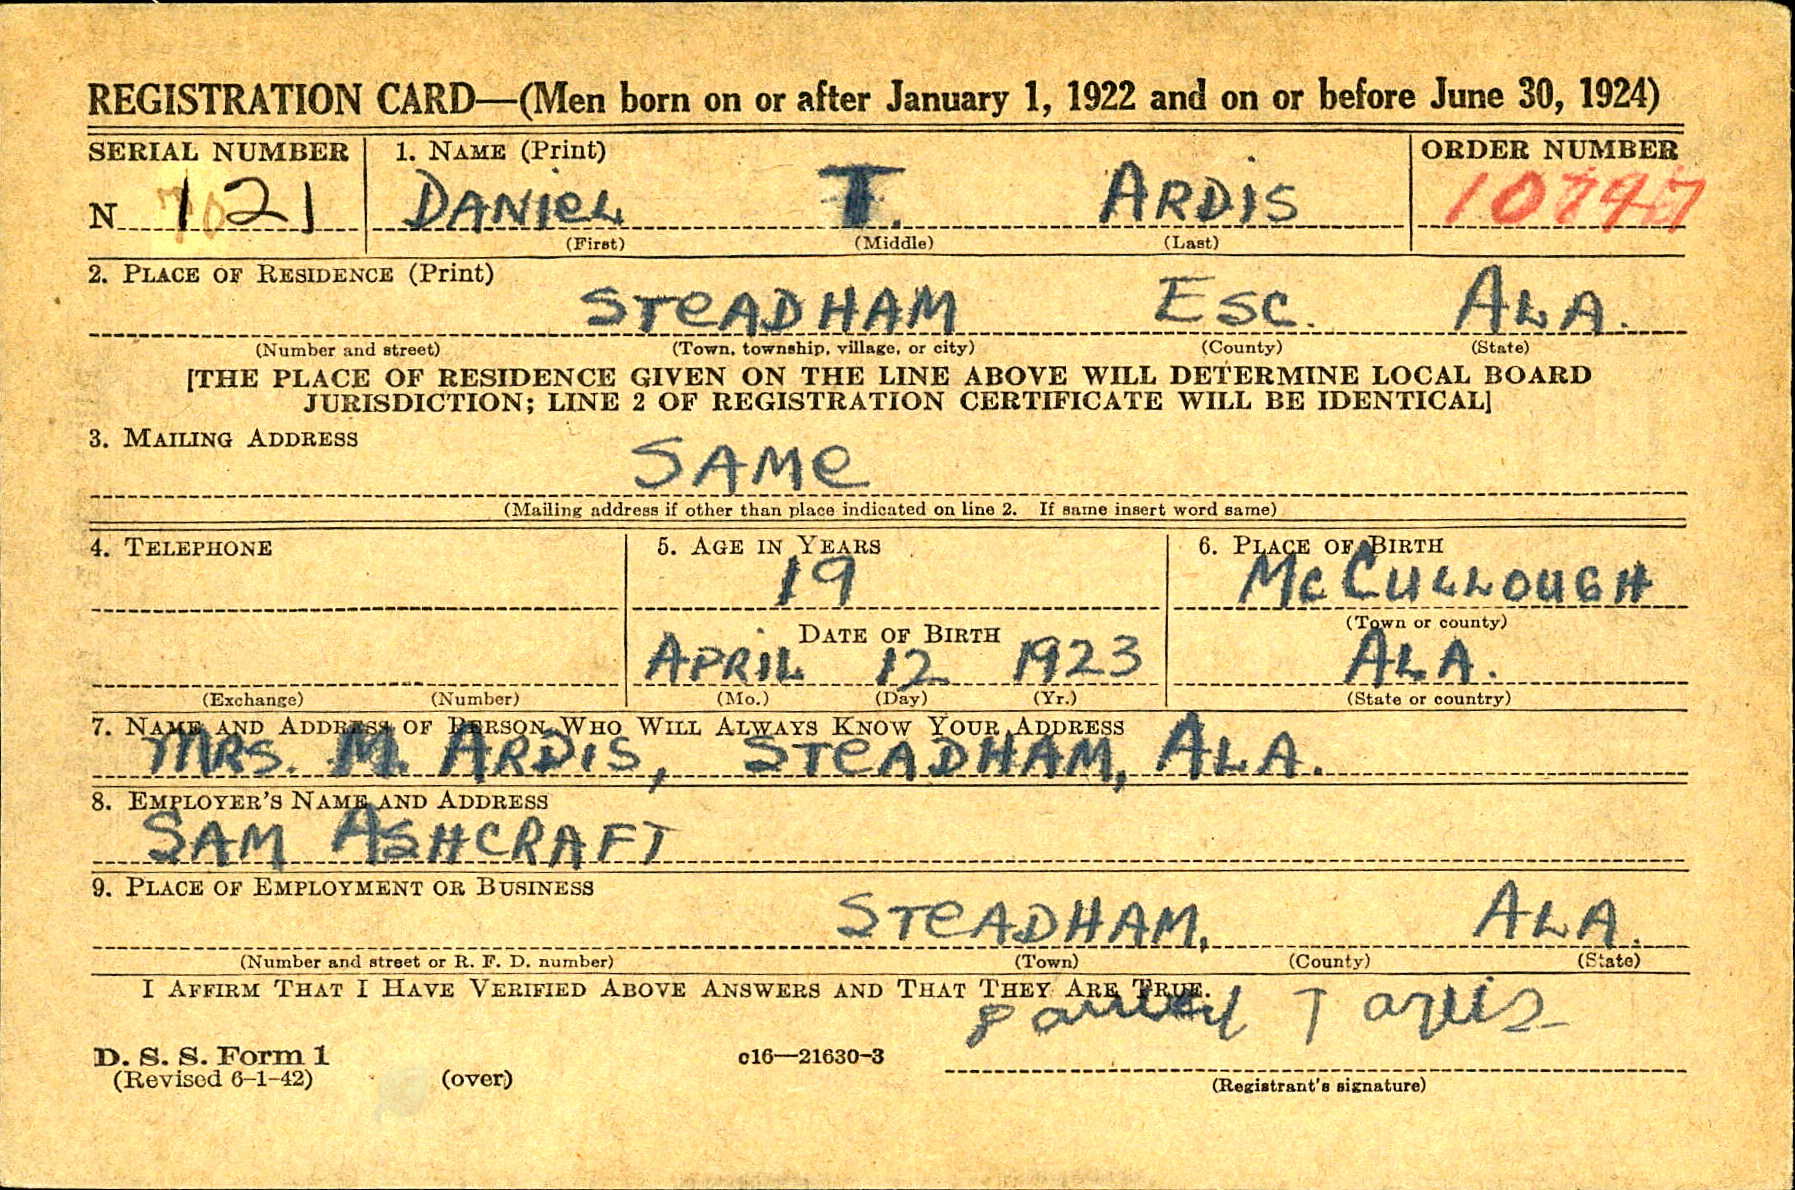 REGISTRATION CARD—(Men born on or after January 1, 1922 and on or before June 30, 1924)
SERIAL NUMBER 1. NAME (Print) ORDER NUMBER
N 121 DANIEL T. ARDIS
(First) (Middle) (Last)
2. PLACE OF RESIDENCE (Print)
STEADHAM ESC. ALA.
(Number and street) (Town, township, village, or city) (County) (State)
[THE PLACE OF RESIDENCE GIVEN ON THE LINE ABOVE WILL DETERMINE LOCAL BOARD
JURISDICTION; LINE 2 OF REGISTRATION CERTIFICATE WILL BE IDENTICAL]
3. MAILING ADDRESS
SAME
(Mailing address if other than place indicated on line 2. If same insert word same)
4. TELEPHONE 5. AGE IN YEARS 6. PLACE OF BIRTH
19 McCULLOUGH
(Town or county)
DATE OF BIRTH
APRIL 12 1923 ALA.
(Exchange) (Number) (Mo.) (Day) (Yr.) (State or country)
7. NAME AND ADDRESS OF PERSON WHO WILL ALWAYS KNOW YOUR ADDRESS
MRS. M. ARDIS, STEADHAM, ALA.
8. EMPLOYER'S NAME AND ADDRESS
SAM ASHCRAFT
9. PLACE OF EMPLOYMENT OR BUSINESS
STEADHAM, ALA.
(Number and street or R. F. D. number) (Town) (County) (State)
I AFFIRM THAT I HAVE VERIFIED ABOVE ANSWERS AND THAT THEY ARE TRUE.
D. S. S. Form 1 c16—21630-3
(Revised 6-1-42) (over) (Registrant's signature)